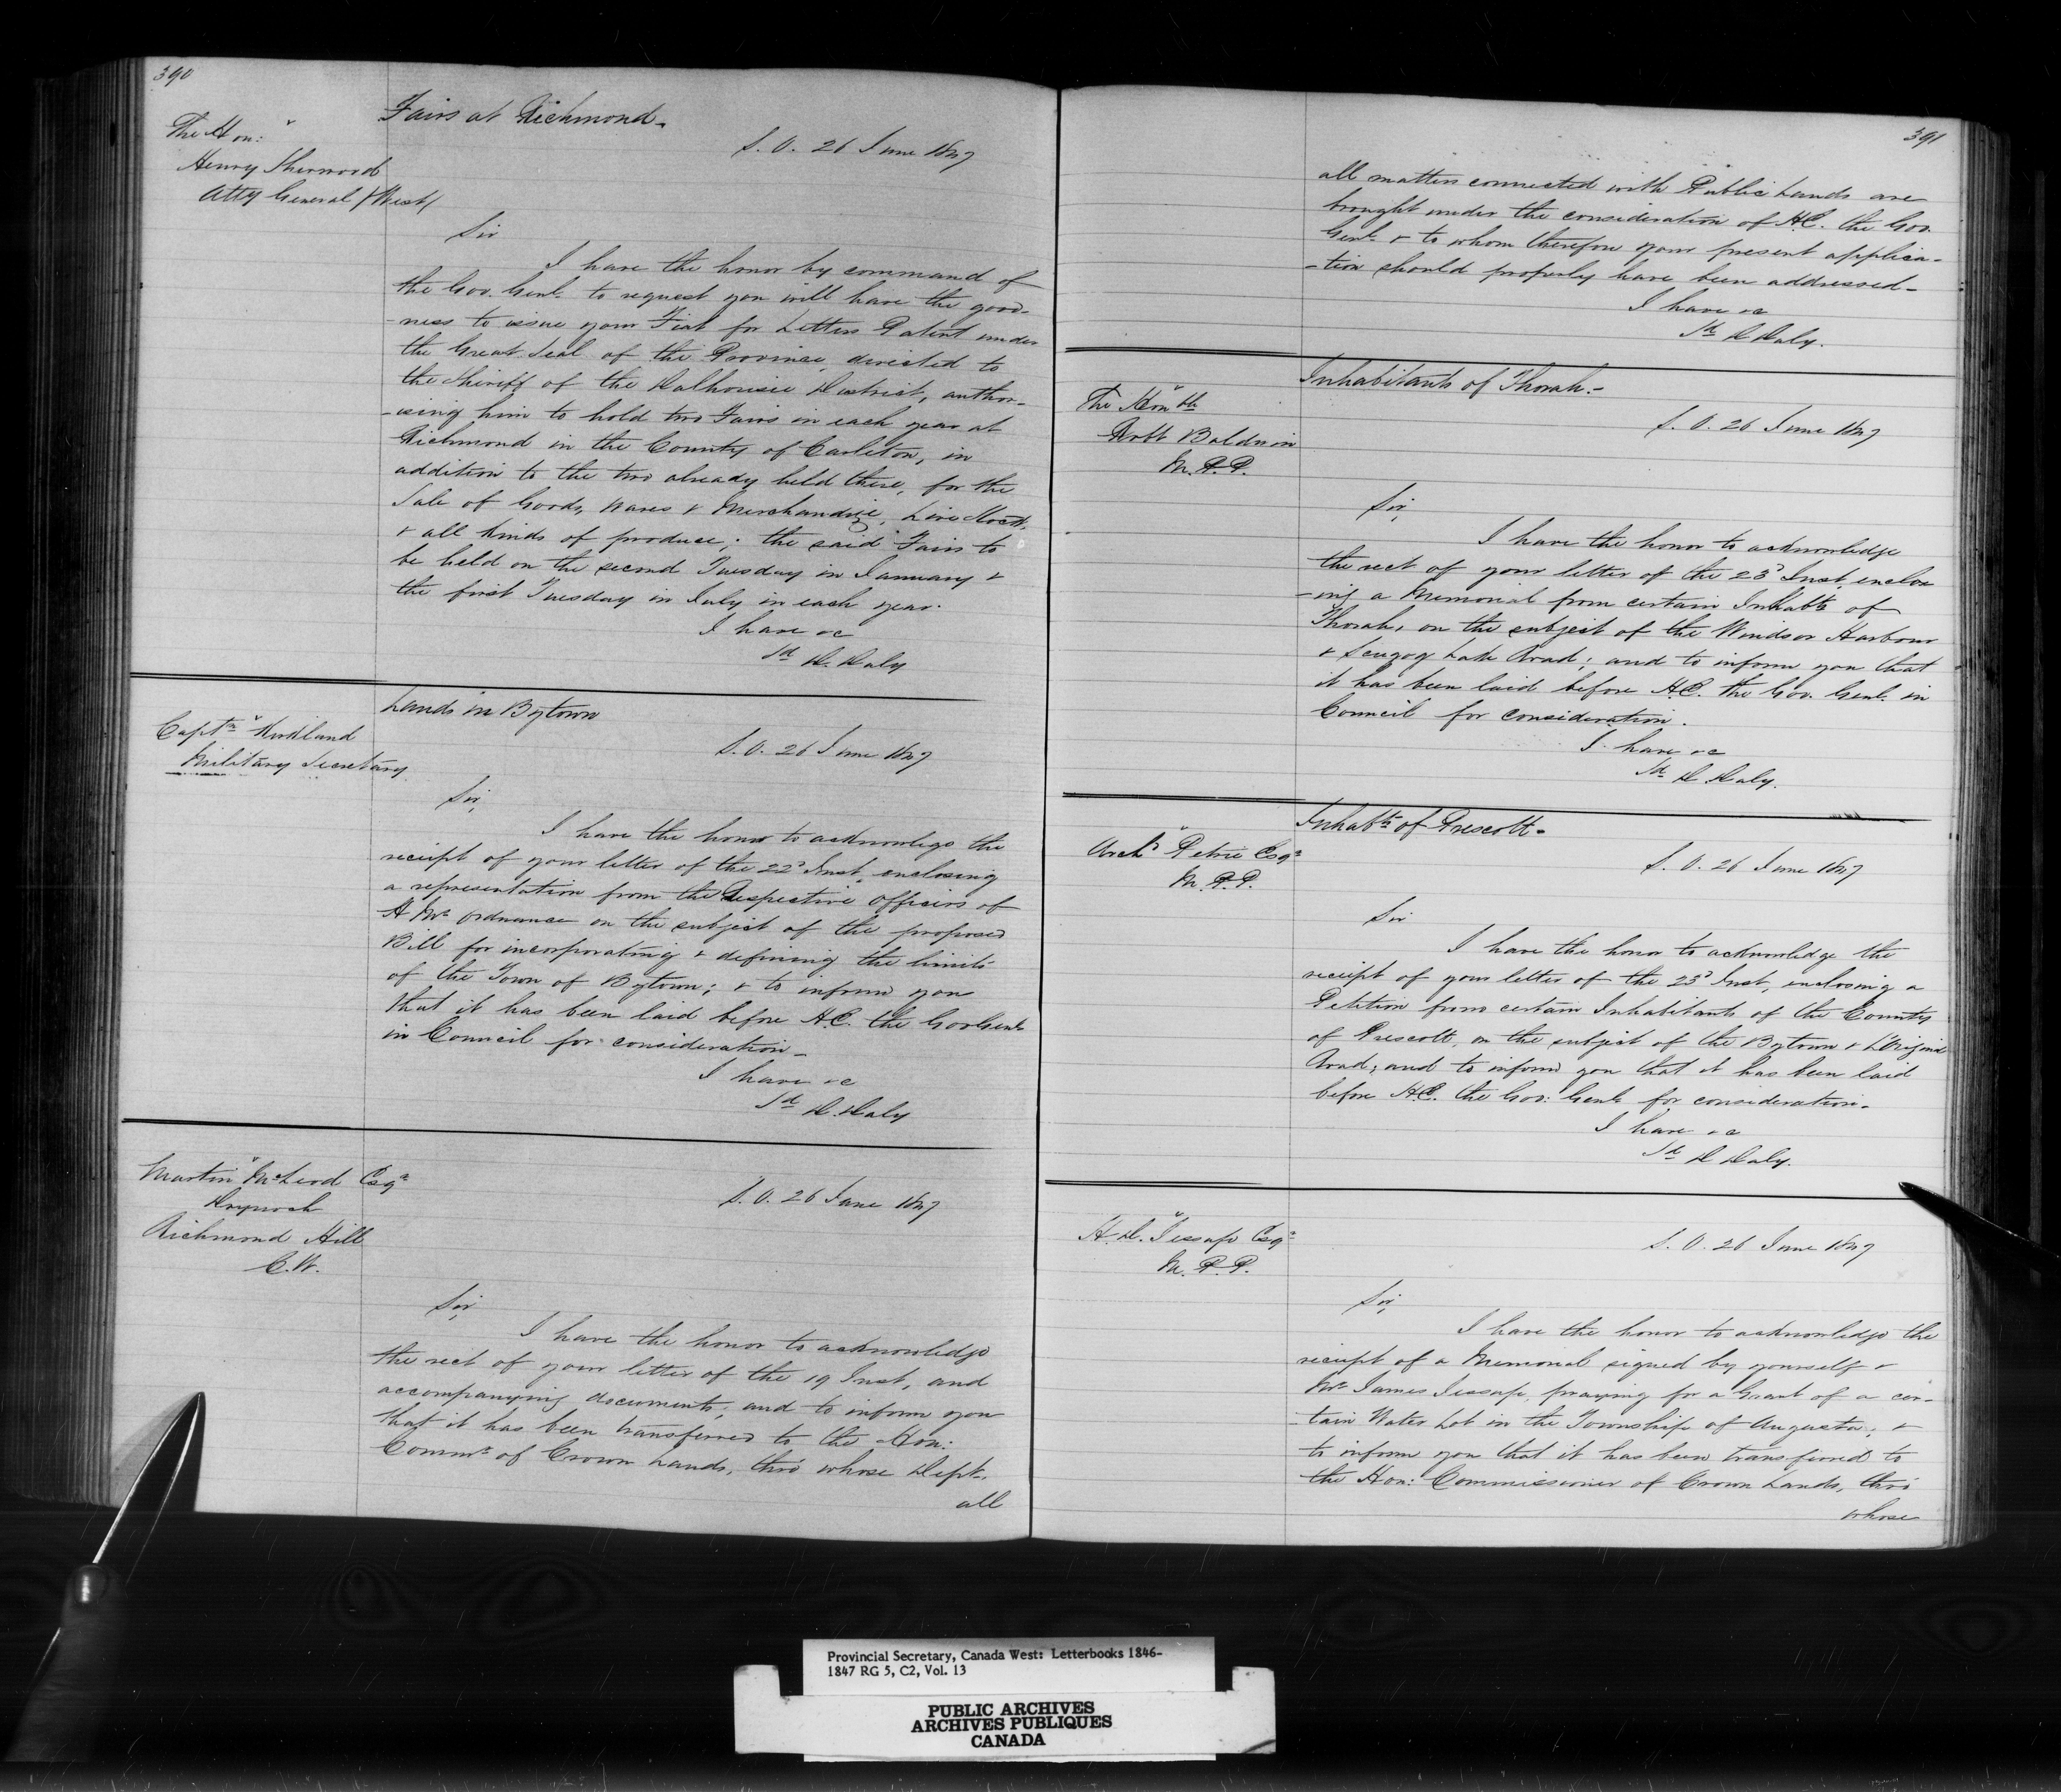 390
Fairs at Richmond.
The Hon:
Henry Sherwood
Atty General (West)
S. O. 26 June 1847
Sir
I have the honor by command of
the Gov. Genl. to request you will have the good-
-ness to issue your Fiat for Letters Patent under
the Great Seal of the Province, directed to
the Sheriff of the Dalhousie District, author-
-ising him to hold two Fairs in each year at
Richmond in the County of Carleton, in
addition to the two already held there, for the
Sale of Goods, Wares & Merchandize, Live Stock,
& all kinds of produce; the said Fairs to
be held on the second Tuesday in January &
the first Tuesday in July in each year.
I have &c
Sd D. Daly
Lands in Bytown
Captn Kirkland
Military Secretary
S. O. 26 June 1847
Sir,
I have the honor to acknowlege the
receipt of your letter of the 22d Inst, enclosing
a representation from the Respective Officers of
H Ms Ordnance on the subject of the proposed
Bill for incorporating & defining the limits
of the Town of Bytown; & to inform you
that it has been laid before H.E. the Gov Genl
in Council for consideration-
I have &c
Sd D. Daly
Martin McLeod Esqr
Drynoch
Richmond Hill
C.W.
S. O. 26 June 1847
Sir,
I have the honor to acknowledge
the rect of your letter of the 19 Inst, and
accompanying documents, and to inform you
that it has been transferred to the Hon:
Commr of Crown Lands, thro' whose Dept.
all
391
all matters connected with Public Lands are
brought under the consideration of H.E. the Gov.
Genl. & to whom therefore your present applica-
-tion should properly have been addressed-
I have &c
Sd D Daly.
Inhabitants of Thorah.-
The Honble
Robt Baldwin
M.P.P.
S. O. 26 June 1847
Sir,
I have the honor to acknowledge
the rect of your letter of the 23d Inst, enclos
-ing a Memorial from certain Inhabts of
Thorah, on the subject of the Windsor Harbour
& Scugog Lake Road; and to inform you that
it has been laid before H.E. the Gov. Genl. in
Council for consideration.
I have &c
Sd D. Daly.
Inhabts of Prescott-
Archd Petrie Esqr
M.P.P.
S. O. 26 June 1847
Sir
I have the honor to acknowledge the
receipt of your letter of the 23d Inst, enclosing a
Petition from certain Inhabitants of the County
of Prescott, on the subject of the Bytown & L'Orignal
Road; and to inform you that it has been laid
before H.E. the Gov: Genl. for consideration-
I have &c
Sd D Daly.
H. D. Jessup Esqr
M.P.P.
S. O. 26 June 1847
Sir,
I have the honor to acknowledge the
receipt of a Memorial signed by yourself &
Mr James Jessup, praying for a Grant of a cer-
-tain Water Lot in the Township of Augusta; &
to inform you that it has been transferred to
the Hon: Commissioner of Crown Lands, thro'
whose
Provincial Secretary, Canada West: Letterbooks 1846-
1847 RG 5, C2, Vol. 13
PUBLIC ARCHIVES
ARCHIVES PUBLIQUES
CANADA